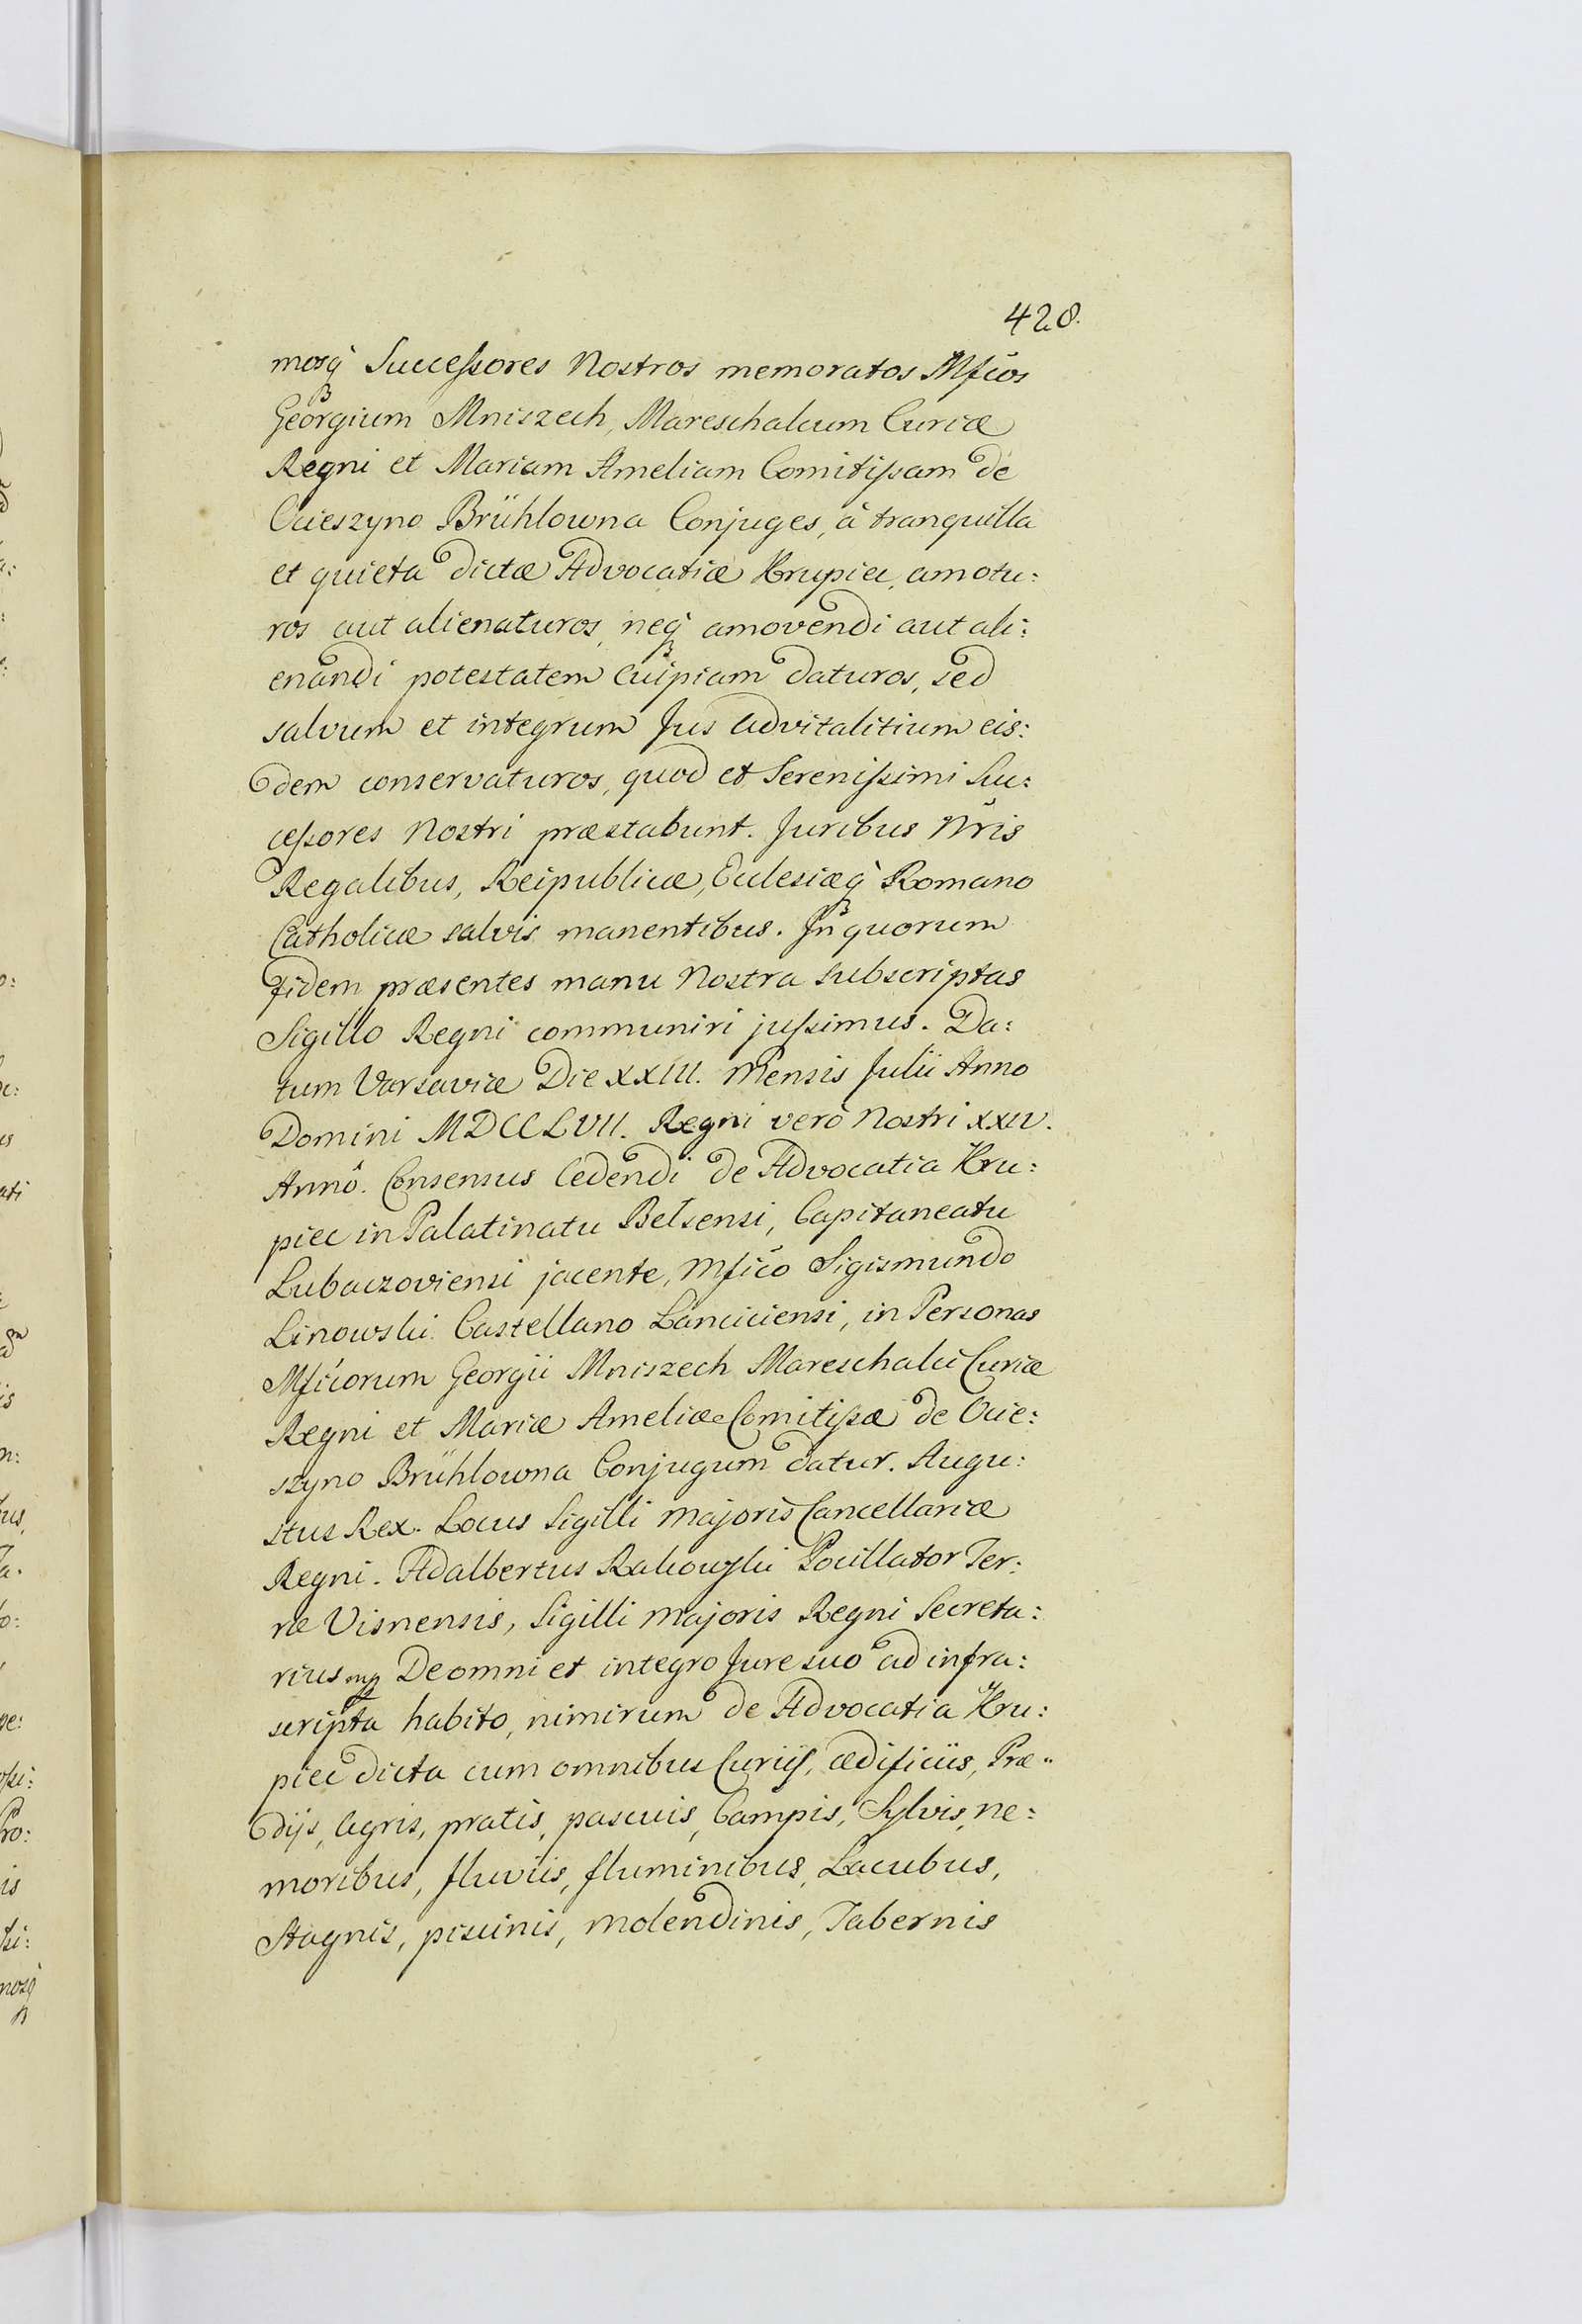 428.
mosq̀ Successores Nostros memoratos Mfĉos
Georgium Mniszech, Mareschalcum Curiæ
Regni et Mariam Ameliam Comitissam de
Ocieszyno Brühlowna Conjuges, à tranquilla
et quieta dictæ Advocatiæ Krupiec, amotu:
ros aut alienaturos, neq̀ amovendi aut ali:
enandi potestatem cuipiam daturos, sed
salvum et integrum Jus advitalitium eis:
dem conservaturos, quod et Serenissimi Suc:
cessores Nostri præstabunt. Juribus Nr̃is
Regalibus, Reipublicæ, Ecclesiæq̀ Romano
Catholicæ salvis manentibus. In quorum
fidem præsentes manu Nostra subscriptas
Sigillo Regni communiri jussimus. Da:
tum Varsaviæ Die XXIII. Mensis Julii Anno
Domini MDCCLVII. Regni verò Nostri XXIV.
Annô. Consensus Cedendi de Advocatia Kru:
piec in Palatinatu Belsensi, Capitaneatu
Lubaczoviensi jacente, Mfico Sigismundo
Linowski Castellano Lanciciensi, in Personas
Mficorum Georgii Mniszech Mareschalci Curiæ
Regni et Mariæ Ameliæ Comitissæ de Ocie:
szyno Brühlowna Conjugum datur. Augu:
stus Rex. Locus Sigilli Majoris Cancellariæ
Regni. Adalbertus Rakowski Pocillator Ter:
ræ Visnensis, Sigilli Majoris Regni Secreta:
rius mp De omni et integro Jure suo ad infra:
scripta habito, nimirum de Advocatia Kru:
piec dicta cum omnibus Curijs, ædificiis, Præ:
dijs, Agris, pratis, pascuis, Campis, Sylvis, ne:
moribus, fluviis, fluminibus, Lacubus,
Stagnis, piscinis, Molendinis, Tabernis